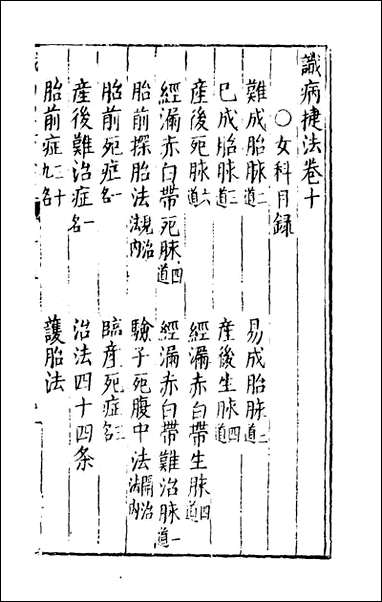 識病捷法卷十
○女科目錄
難成胎脉二道 易成胎脉二道
已成胎脉三道 產後生脉四道
產後死脉六道 經漏赤白帶生脉四道
經漏赤白帶死脉四道 經漏赤白帶難治脉一道
胎前探胎法見治法內 驗子死腹中法開治法內
胎前死症一名 臨產死症三名
產後難治症一名 治法四十四条
胎前症二十九名 護胎法